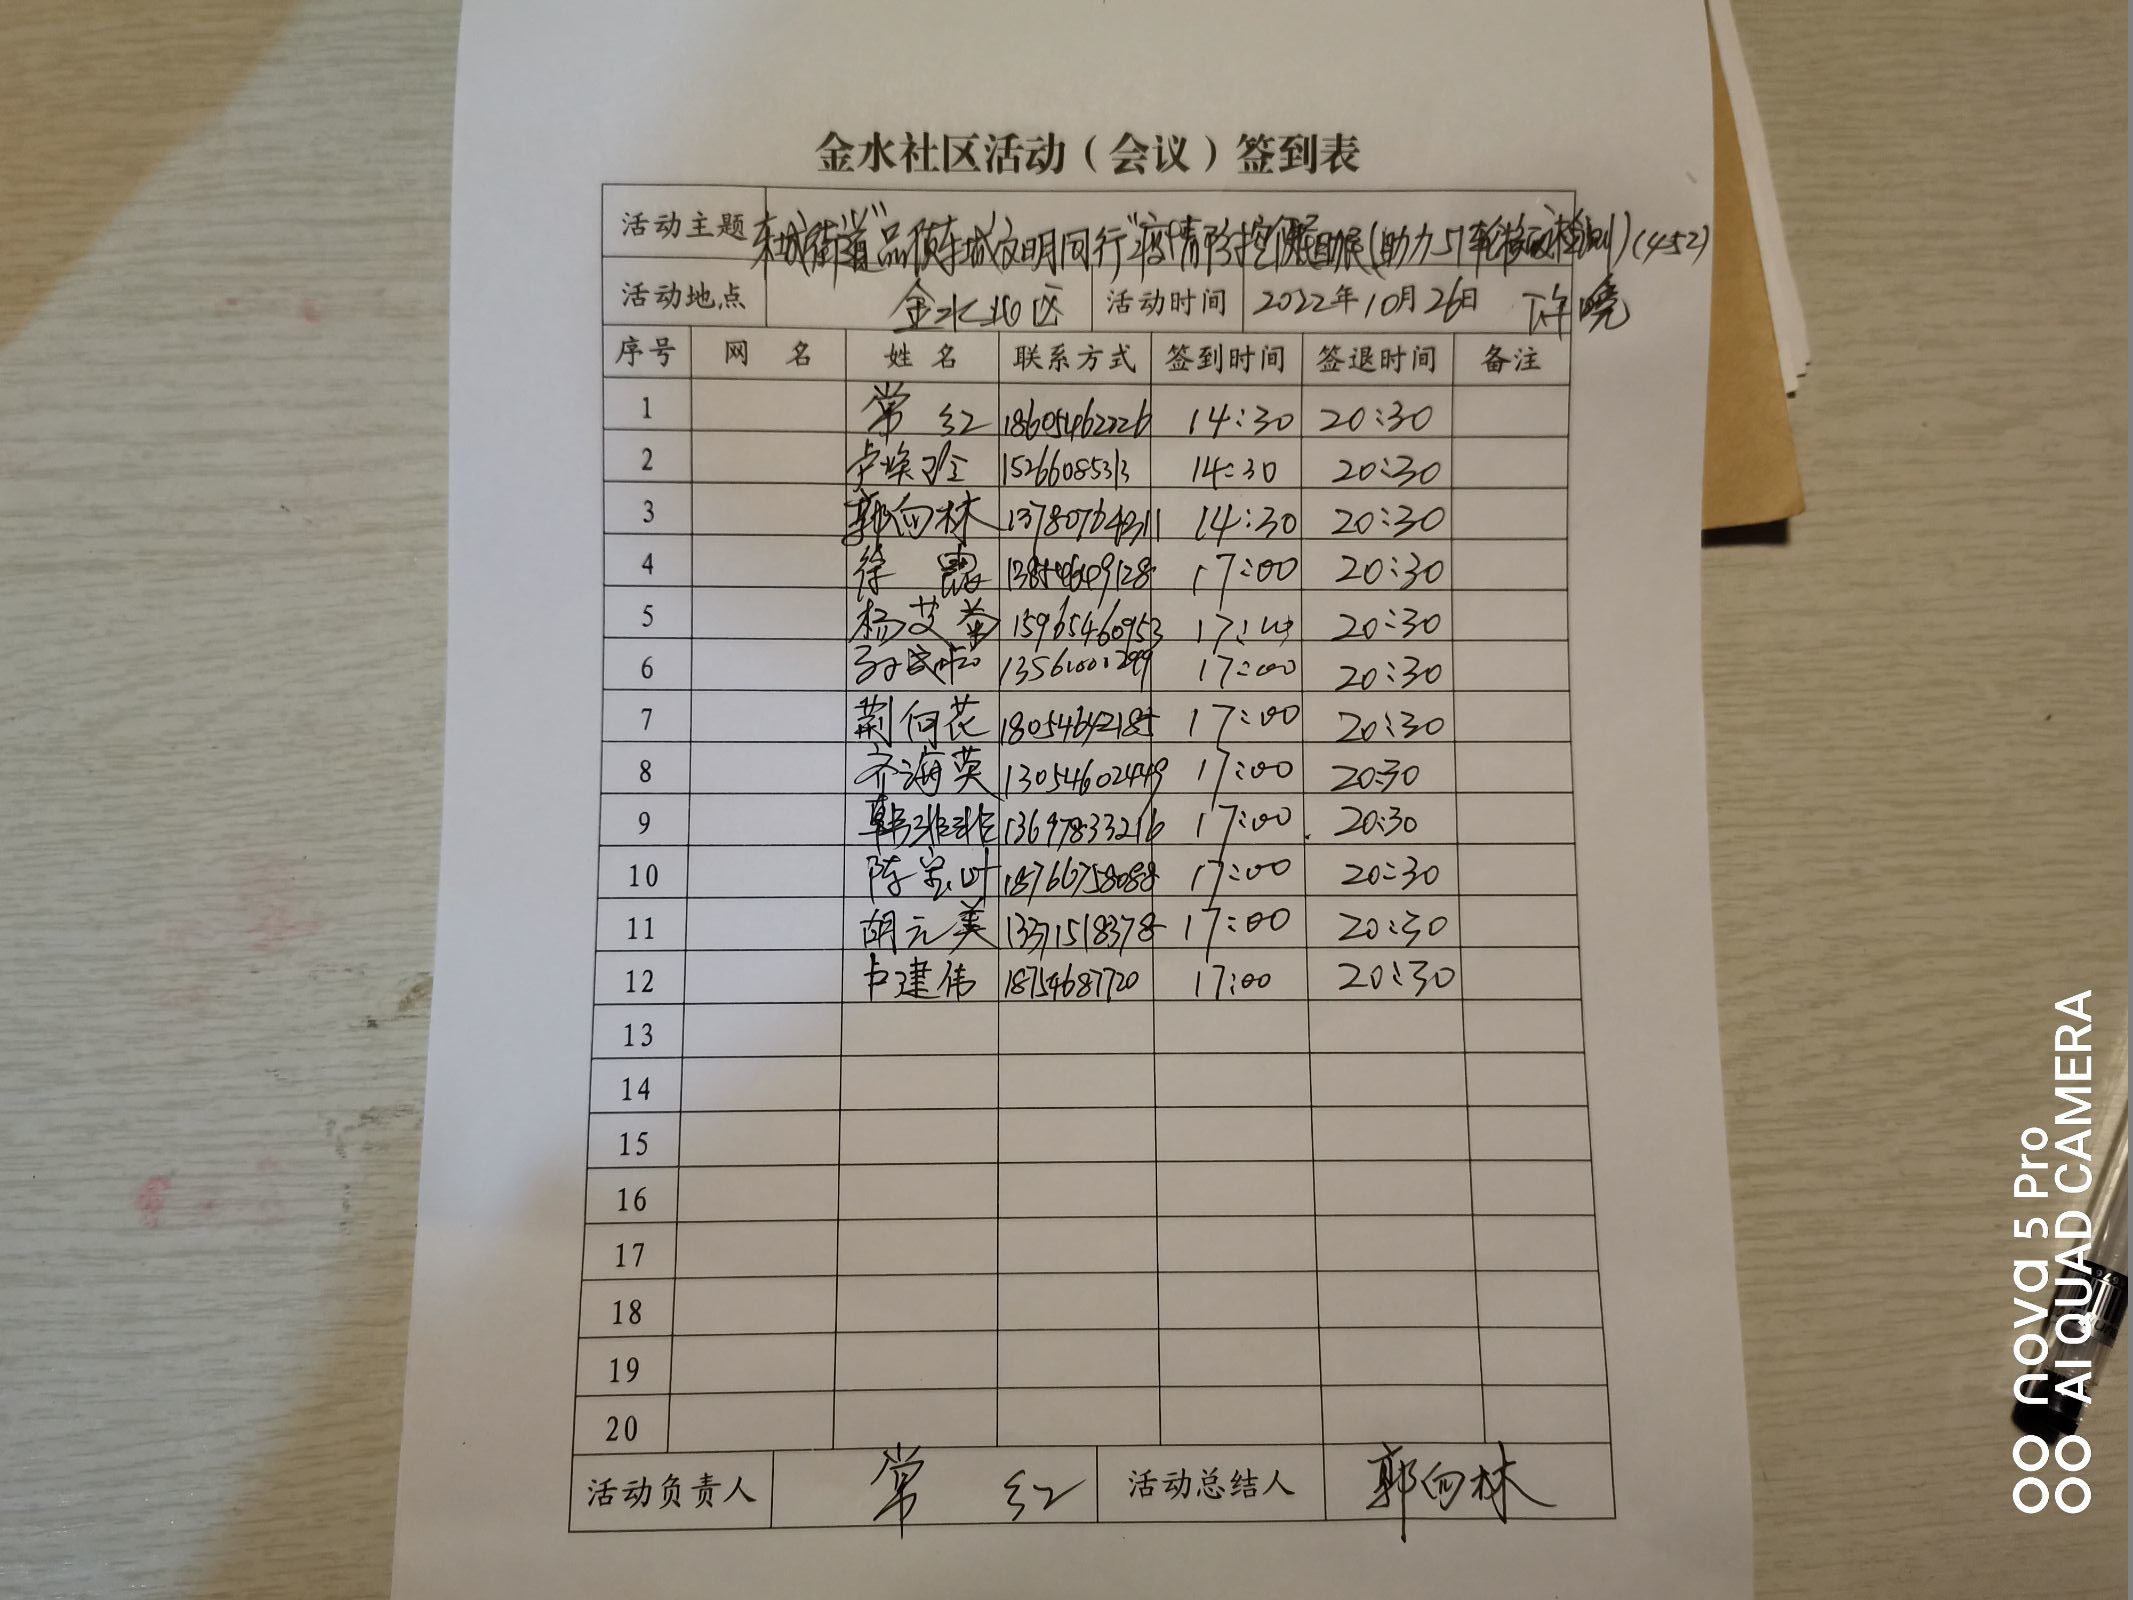 金水社区活动（会议）签到表
活动主题 东城街道"品质东城文明同行"疫情防控(助力51轮核酸检测)(452)
活动地点 金水社区 活动时间 2022年10月26日 许晓
序号 网 名 姓 名 联系方式 签到时间 签退时间 备注
1 常 红 18605462226 14:30 20:30
2 卢焕珍 15266085313 14:30 20:30
3 郭向林 13780764311 14:30 20:30
4 徐 霞 13854649128 17:00 20:30
5 杨艾菊 15965460953 17:00 20:30
6 17:00 20:30
7 荆何花 18054642185 17:00 20:30
8 齐海英 13054602449 17:00 20:30
9 韩非非 13697833216 17:00 20:30
10 陈宝叶 18766758088 17:00 20:30
11 胡元美 13371518378 17:00 20:30
12 卢建伟 18754687720 17:00 20:30
13
14
15
16
17
18
19
20
活动负责人 常 红 活动总结人 郭向林
nova 5 Pro
AI QUAD CAMERA